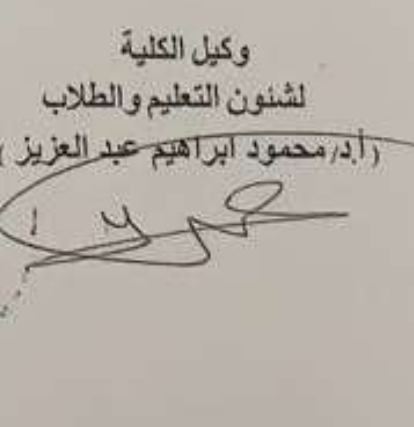 وكيل الكلية
لشئون التعليم والطلاب
(أ.د/ محمود ابراهيم عبد العزيز)